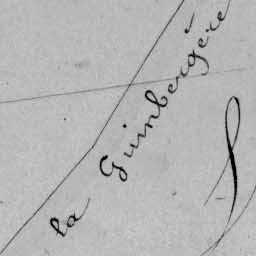 la Guinbergère